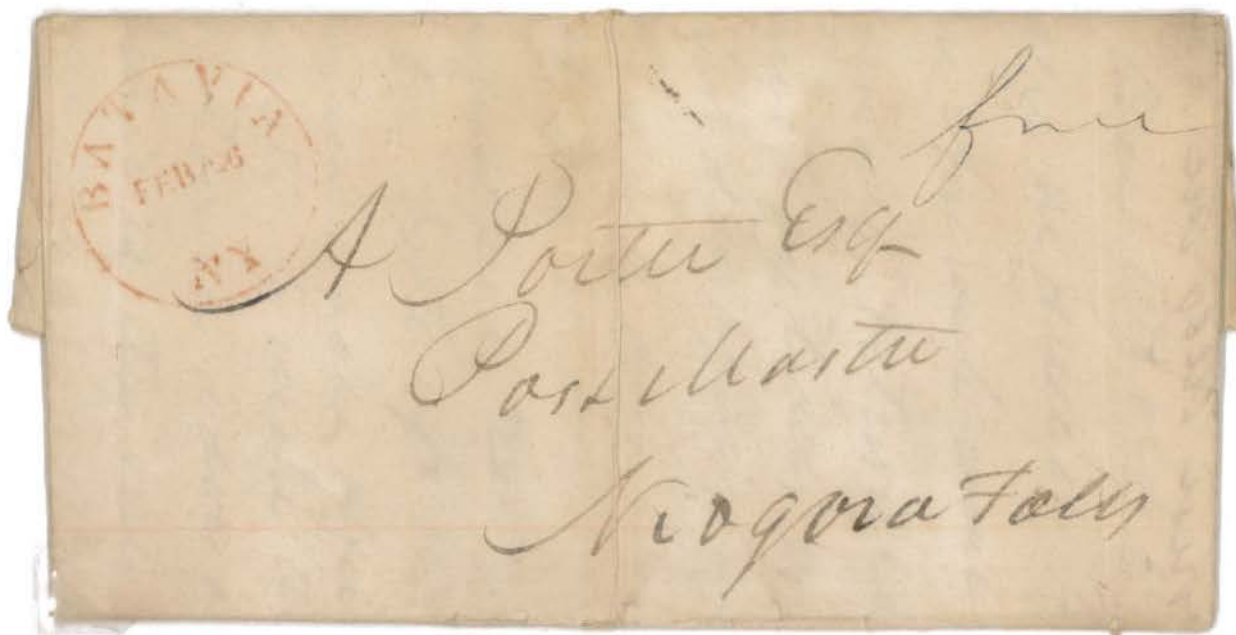 BATAVIA
FEB 26
NY
free
A Porter Esq
Post Master
Niagara Falls